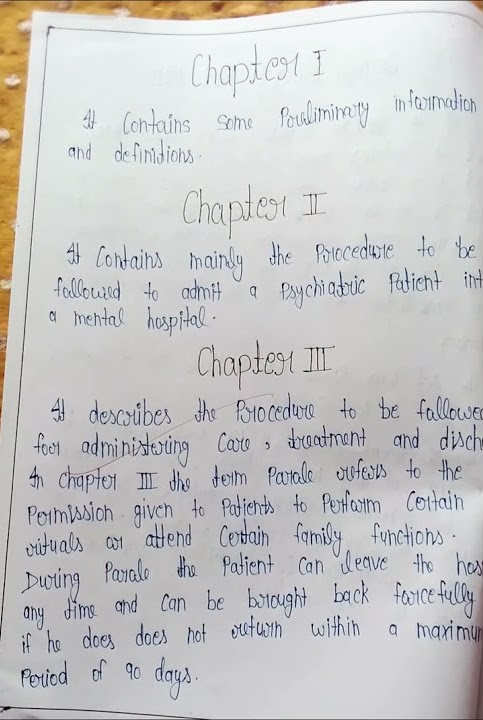 Chapter I
It Contains some Preliminary information
and definitions.
Chapter II
It Contains mainly the Procedure to be
followed to admit a Psychiatric Patient int
a mental hospital.
Chapter III
It describes the Procedure to be followe
for administering Care, treatment and disch
In chapter III the term Parale refers to the
Permission given to Patients to Perform Certain
rituals or attend Certain family functions.
During Parale the Patient can leave the hos
any time and can be brought back forcefully
if he does does not return within a maximum
Period of 90 days.